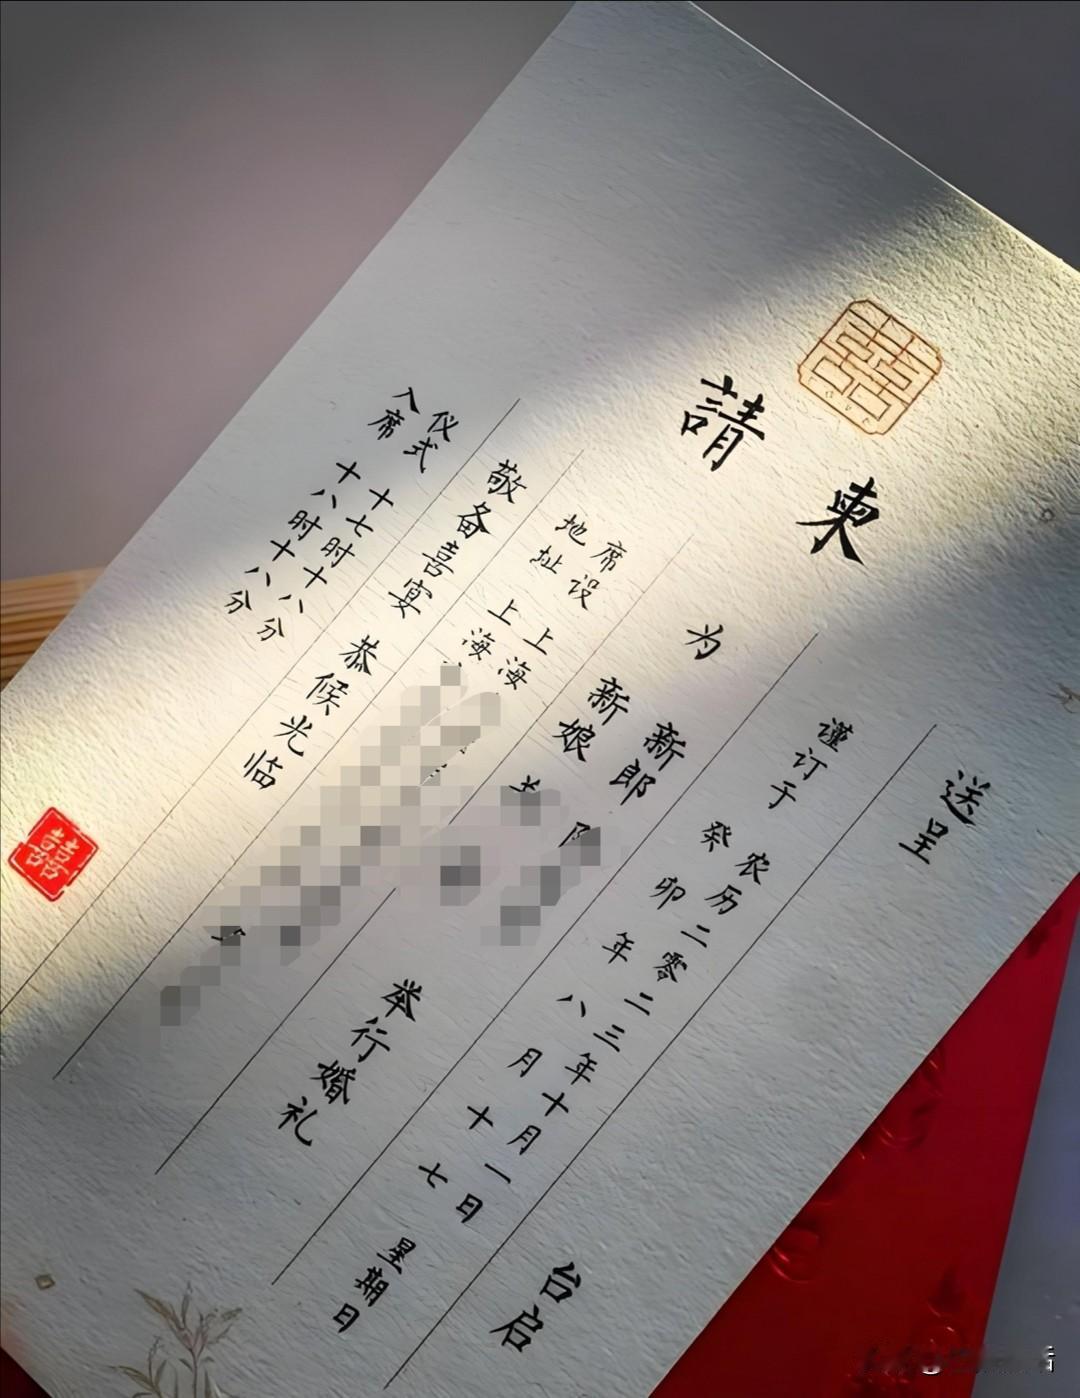 囍
請柬
送呈 台启
谨订于
农历二零二三年十月一日
癸卯年八月十七 星期日
为
新郎
新娘
举行婚礼
席设 上海
地址 上海
敬备喜宴 恭候光临
仪式 十七时十八分
入席 十八时十八分
囍